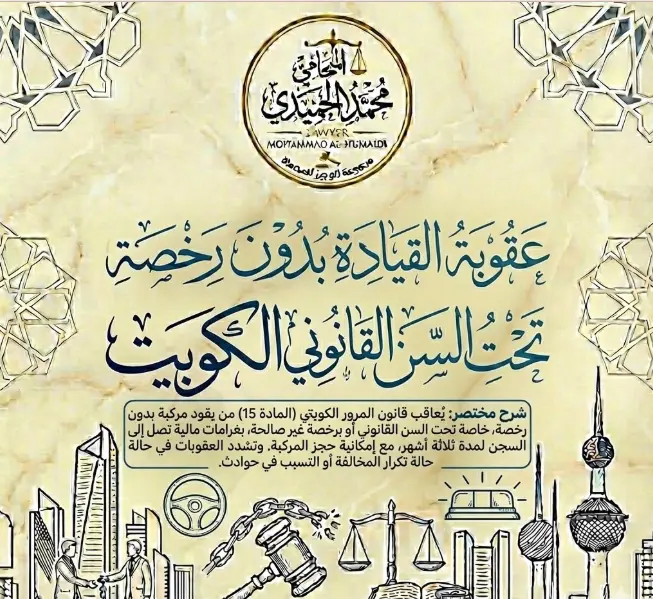 المحامي
محمد الحميدي
LAWYER
عَقُوبَةُ القيَادَةِ بُدُونَ رَخصَةِ
تَحْتِ السَّنِ القَانُوني الكويَت
شرح مختصر: يُعاقب قانون المرور الكويتي (المادة 15) من يقود مركبة بدون
رخصة، خاصة تحت السن القانوني أو برخصة غير صالحة، بغرامات مالية تصل إلى
السجن لمدة ثلاثة أشهر، مع إمكانية حجز المركبة. وتشدد العقوبات في حالة
حالة تكرار المخالفة أو التسبب في حوادث.